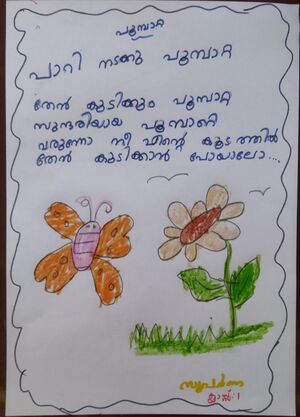 പൂമ്പാറ്റ
പാറി നടക്കു പൂമ്പാറ്റ
തേൻ കുടിക്കും പൂമ്പാറ്റ
സുന്ദരിയായ പൂമ്പാറ്റ
വരുന്നോ നീ എന്റെ കൂടത്തിൽ
തേൻ കുടിക്കാൻ പോയാലോ....
സുപർണ
ക്ലാസ്സ്:1